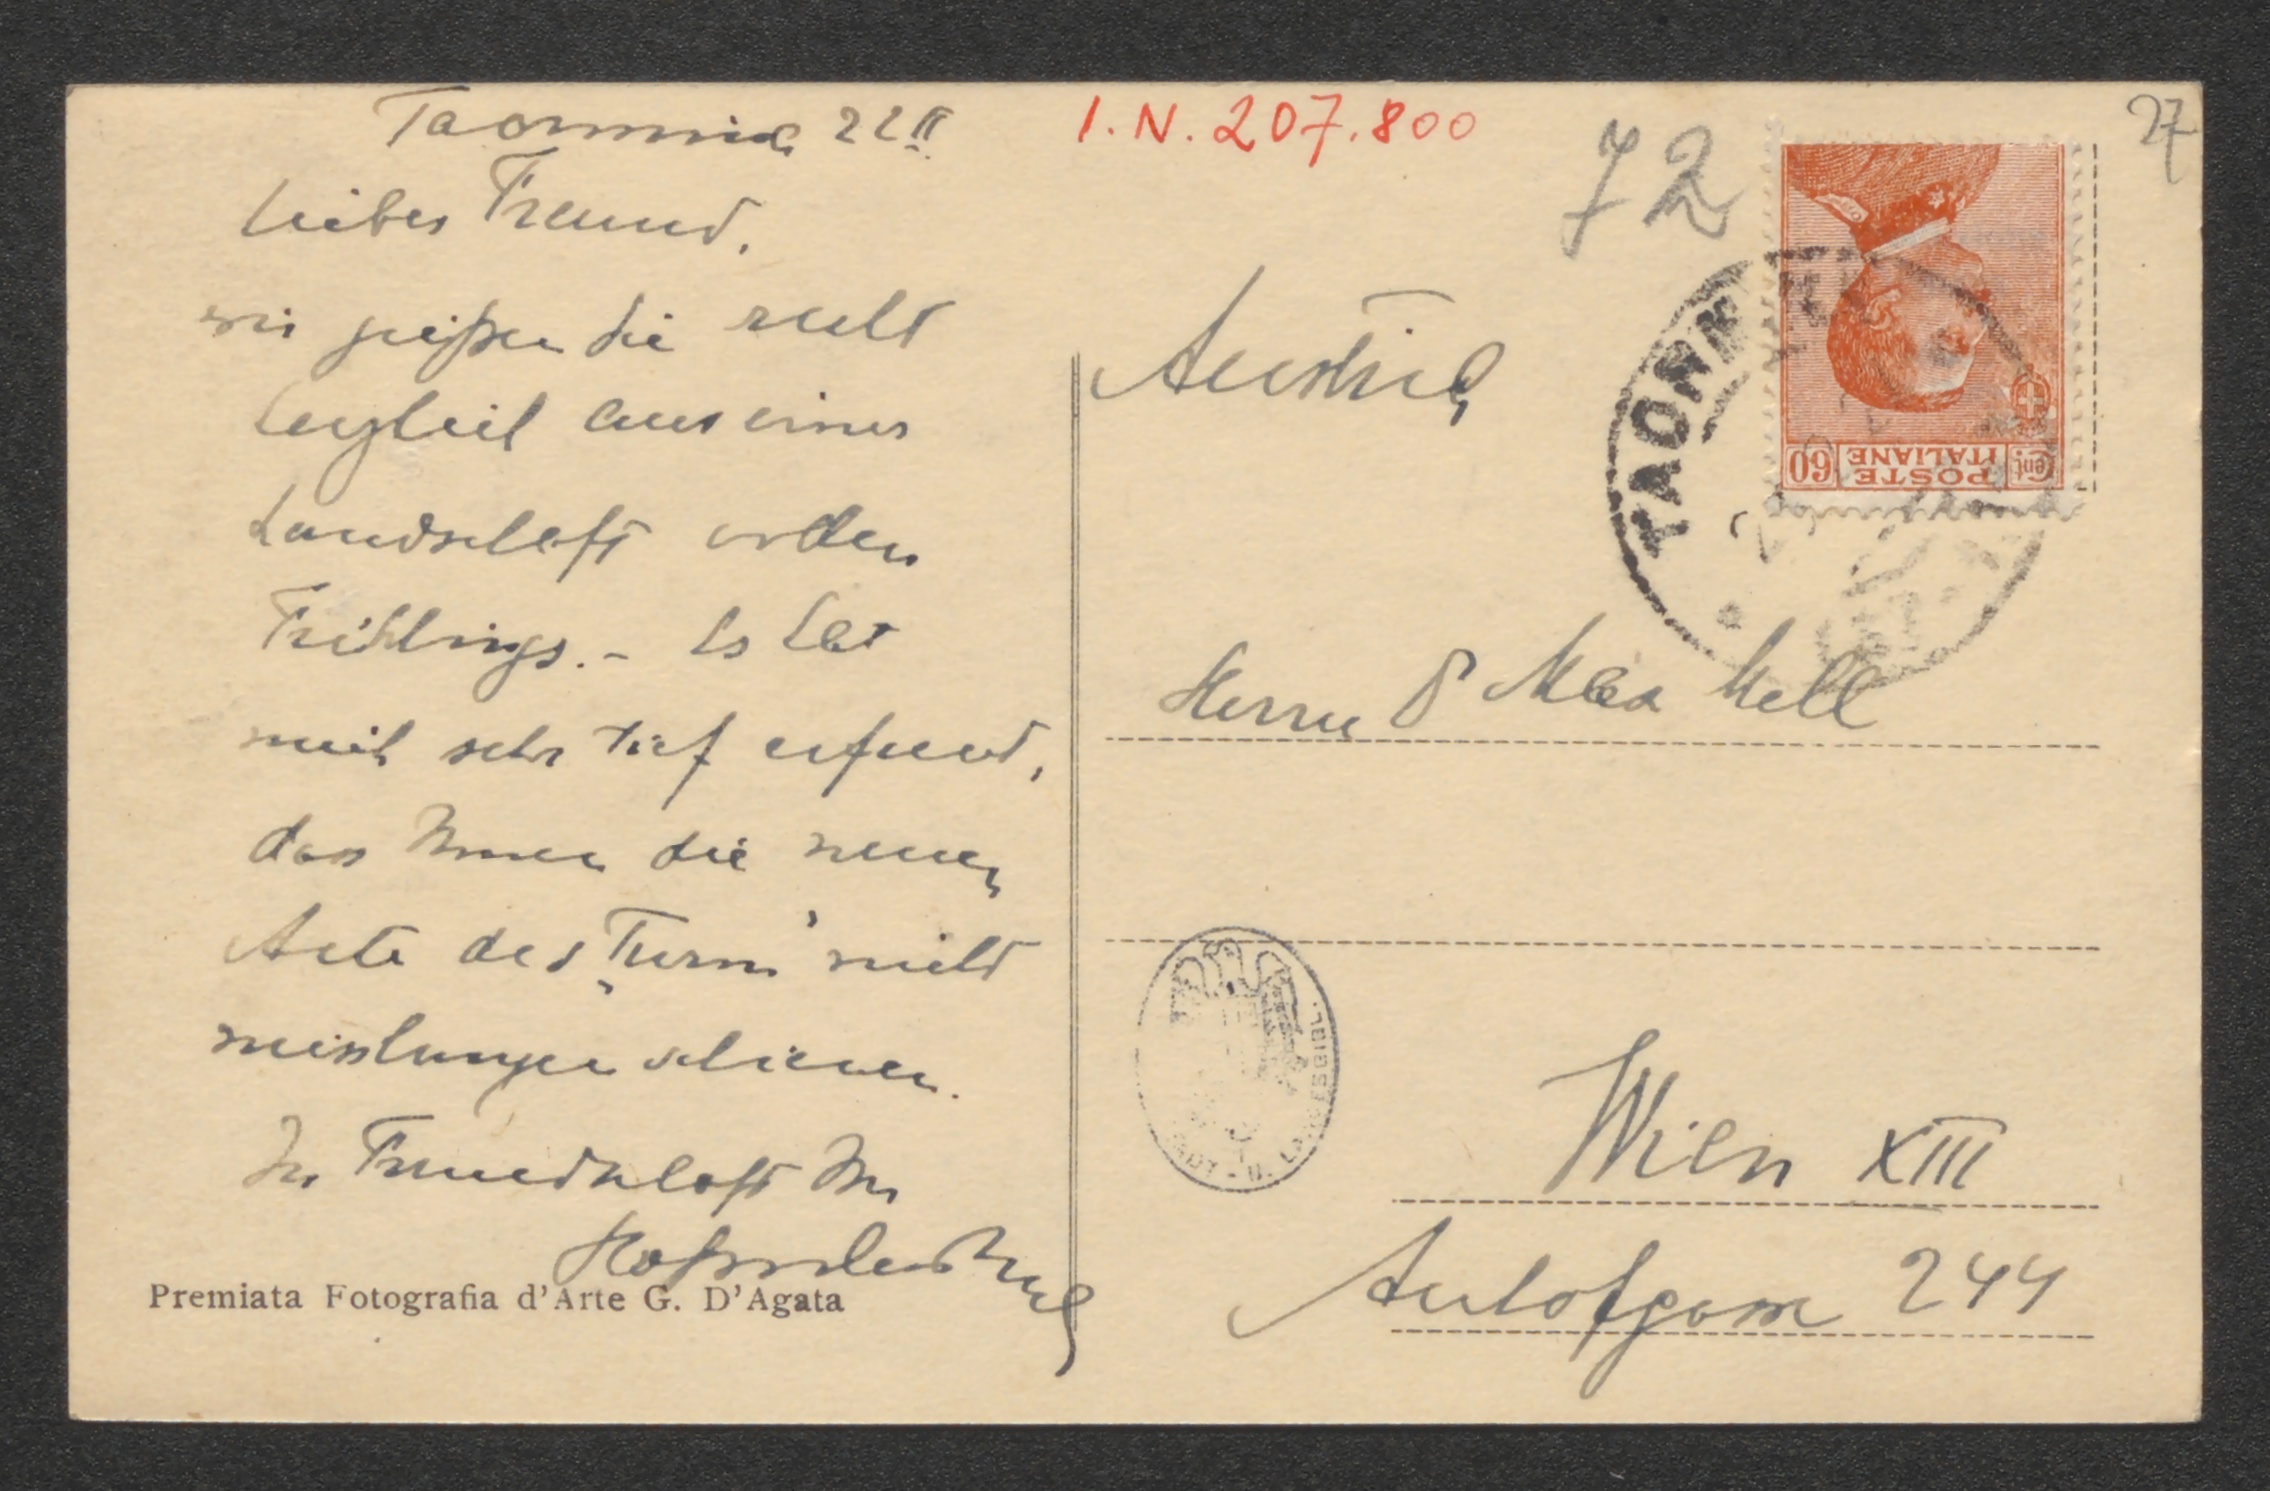 Taormina 22 II
lieber Freund,
wir grüßen Sie recht
herzlich aus einer
Landschaft vollen
Frühlings. – Es hat
mich sehr tief erfreut,
dass Ihnen die neuen
Acte des „Turm" nicht
misslungen schienen.
In Freundschaft Ihr
Hofmannsthal
Premiata Fotografia d'Arte G. D'Agata
I.N. 207.800
72
27
Austria
TAORMI
Cent. POSTE ITALIANE 60
Herrn Dr Max Mell
Wien XIII
Auhofgasse 244
U. LANDESBIBL.